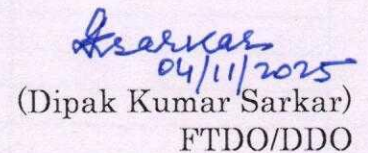 Dsarkar
04/11/2025
(Dipak Kumar Sarkar)
FTDO/DDO